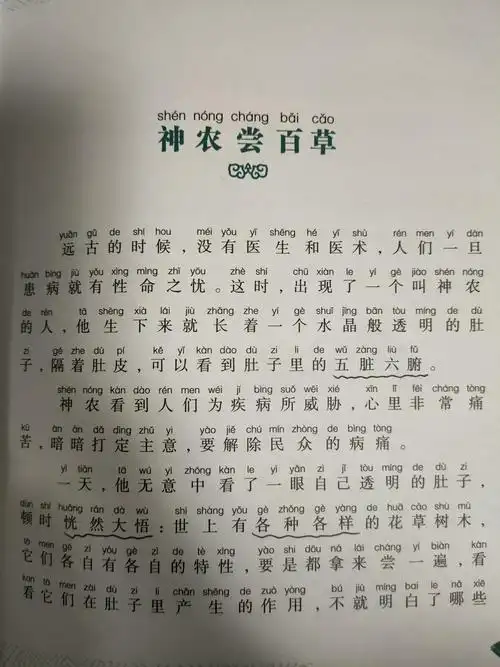 shén nóng cháng bǎi cǎo
神农尝百草
yuǎn gǔ de shí hou méi yǒu yī shēng hé yī shù rén men yí dàn
远古的时候,没有医生和医术,人们一旦
huàn bìng jiù yǒu xìng mìng zhī yōu zhè shí chū xiàn le yí gè jiào shén nóng
患病就有性命之忧。这时,出现了一个叫神农
de rén tā shēng xià lái jiù zhǎng zhe yí gè shuǐ jīng bān tòu míng de dù
的人,他生下来就长着一个水晶般透明的肚
zi gé zhe dù pí kě yǐ kàn dào dù zi lǐ de wǔ zàng liù fǔ
子,隔着肚皮,可以看到肚子里的五脏六腑。
shén nóng kàn dào rén men wéi jí bìng suǒ wēi xié xīn lǐ fēi cháng tòng
神农看到人们为疾病所威胁,心里非常痛
kǔ àn àn dǎ dìng zhǔ yi yào jiě chú mín zhòng de bìng tòng
苦,暗暗打定主意,要解除民众的病痛。
yì tiān tā wú yì zhōng kàn le yì yǎn zì jǐ tòu míng de dù zi
一天,他无意中看了一眼自己透明的肚子,
dùn shí huǎng rán dà wù shì shàng yǒu gè zhǒng gè yàng de huā cǎo shù mù
顿时恍然大悟:世上有各种各样的花草树木,
tā men gè zì yǒu gè zì de tè xìng yào shi dōu ná lái cháng yí biàn kàn
它们各自有各自的特性,要是都拿来尝一遍,看
kan tā men zài dù zi lǐ chǎn shēng de zuò yòng bú jiù míng bai le nǎ xiē
看它们在肚子里产生的作用,不就明白了哪些